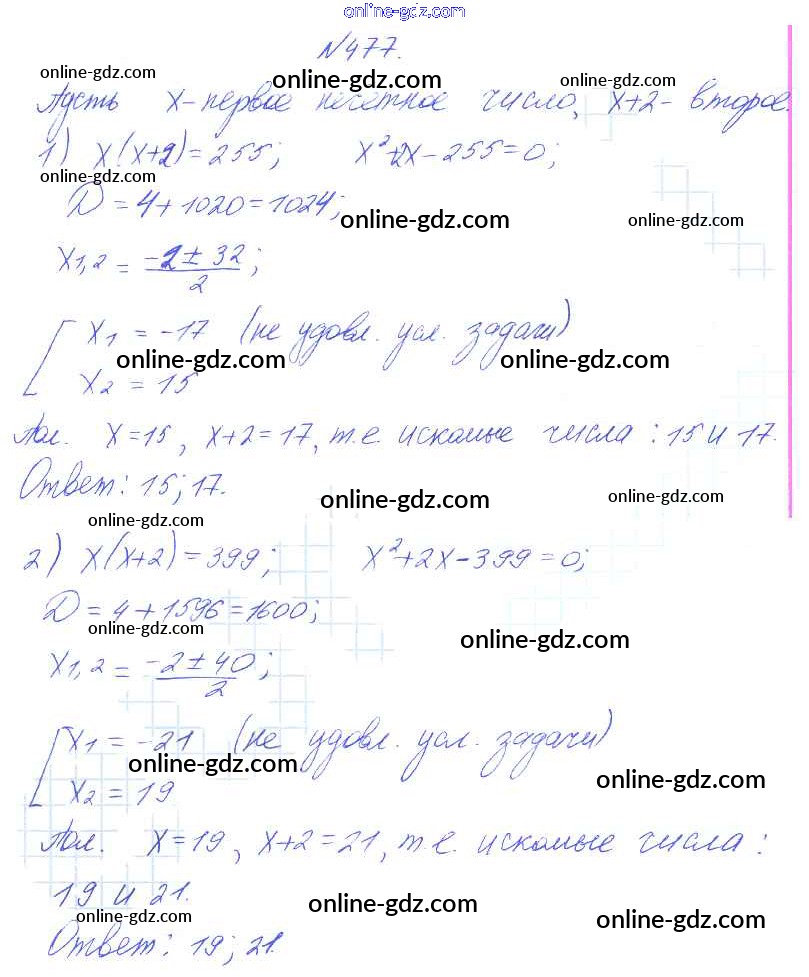 online-gdz.com
N477.
online-gdz.com online-gdz.com online-gdz.com
Пусть x-первое нечетное число, x+2- второе.
1) x(x+2)=255; x²+2x-255=0;
online-gdz.com
D=4+1020=1024;
online-gdz.com online-gdz.com
x1,2 = -2±32/2;
x1 = -17 (не удовл. усл. задачи)
online-gdz.com online-gdz.com
x2 = 15
Пол. x=15, x+2=17, т.е. искомые числа: 15 и 17.
Ответ: 15; 17.
online-gdz.com online-gdz.com
online-gdz.com
2) x(x+2)=399; x²+2x-399=0;
D=4+1596=1600;
online-gdz.com online-gdz.com
x1,2 = -2±40/2;
x1 = -21 (не удовл. усл. задачи)
online-gdz.com online-gdz.com
x2 = 19
Пол. x=19, x+2=21, т.е. искомые числа:
19 и 21.
online-gdz.com online-gdz.com online-gdz.com
Ответ: 19; 21.